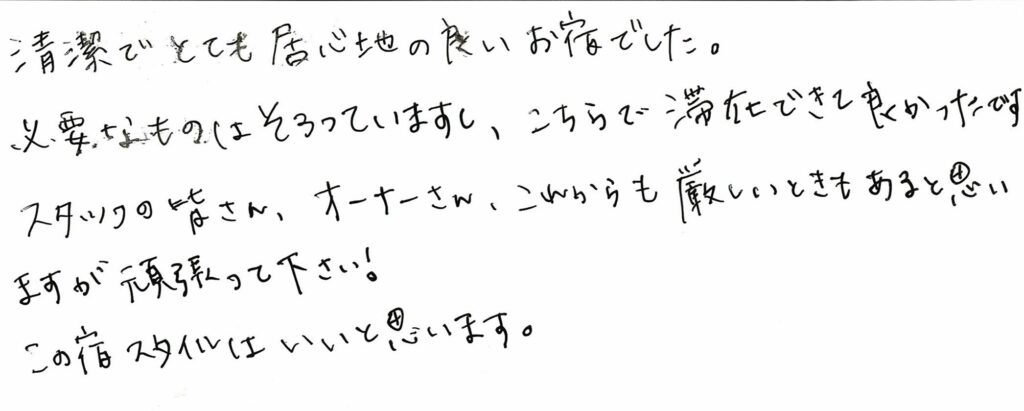 清潔でとても居心地の良いお宿でした。
必要なものはそろっていますし、こちらで滞在できて良かったです
スタッフの皆さん、オーナーさん、これからも厳しいときもあると思い
ますが頑張って下さい!
この宿スタイルはいいと思います。